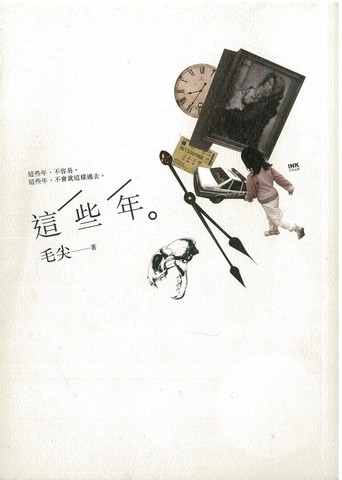 這些年，不容易。
這些年，不會就這樣過去。
這些年。
毛尖——著
INK